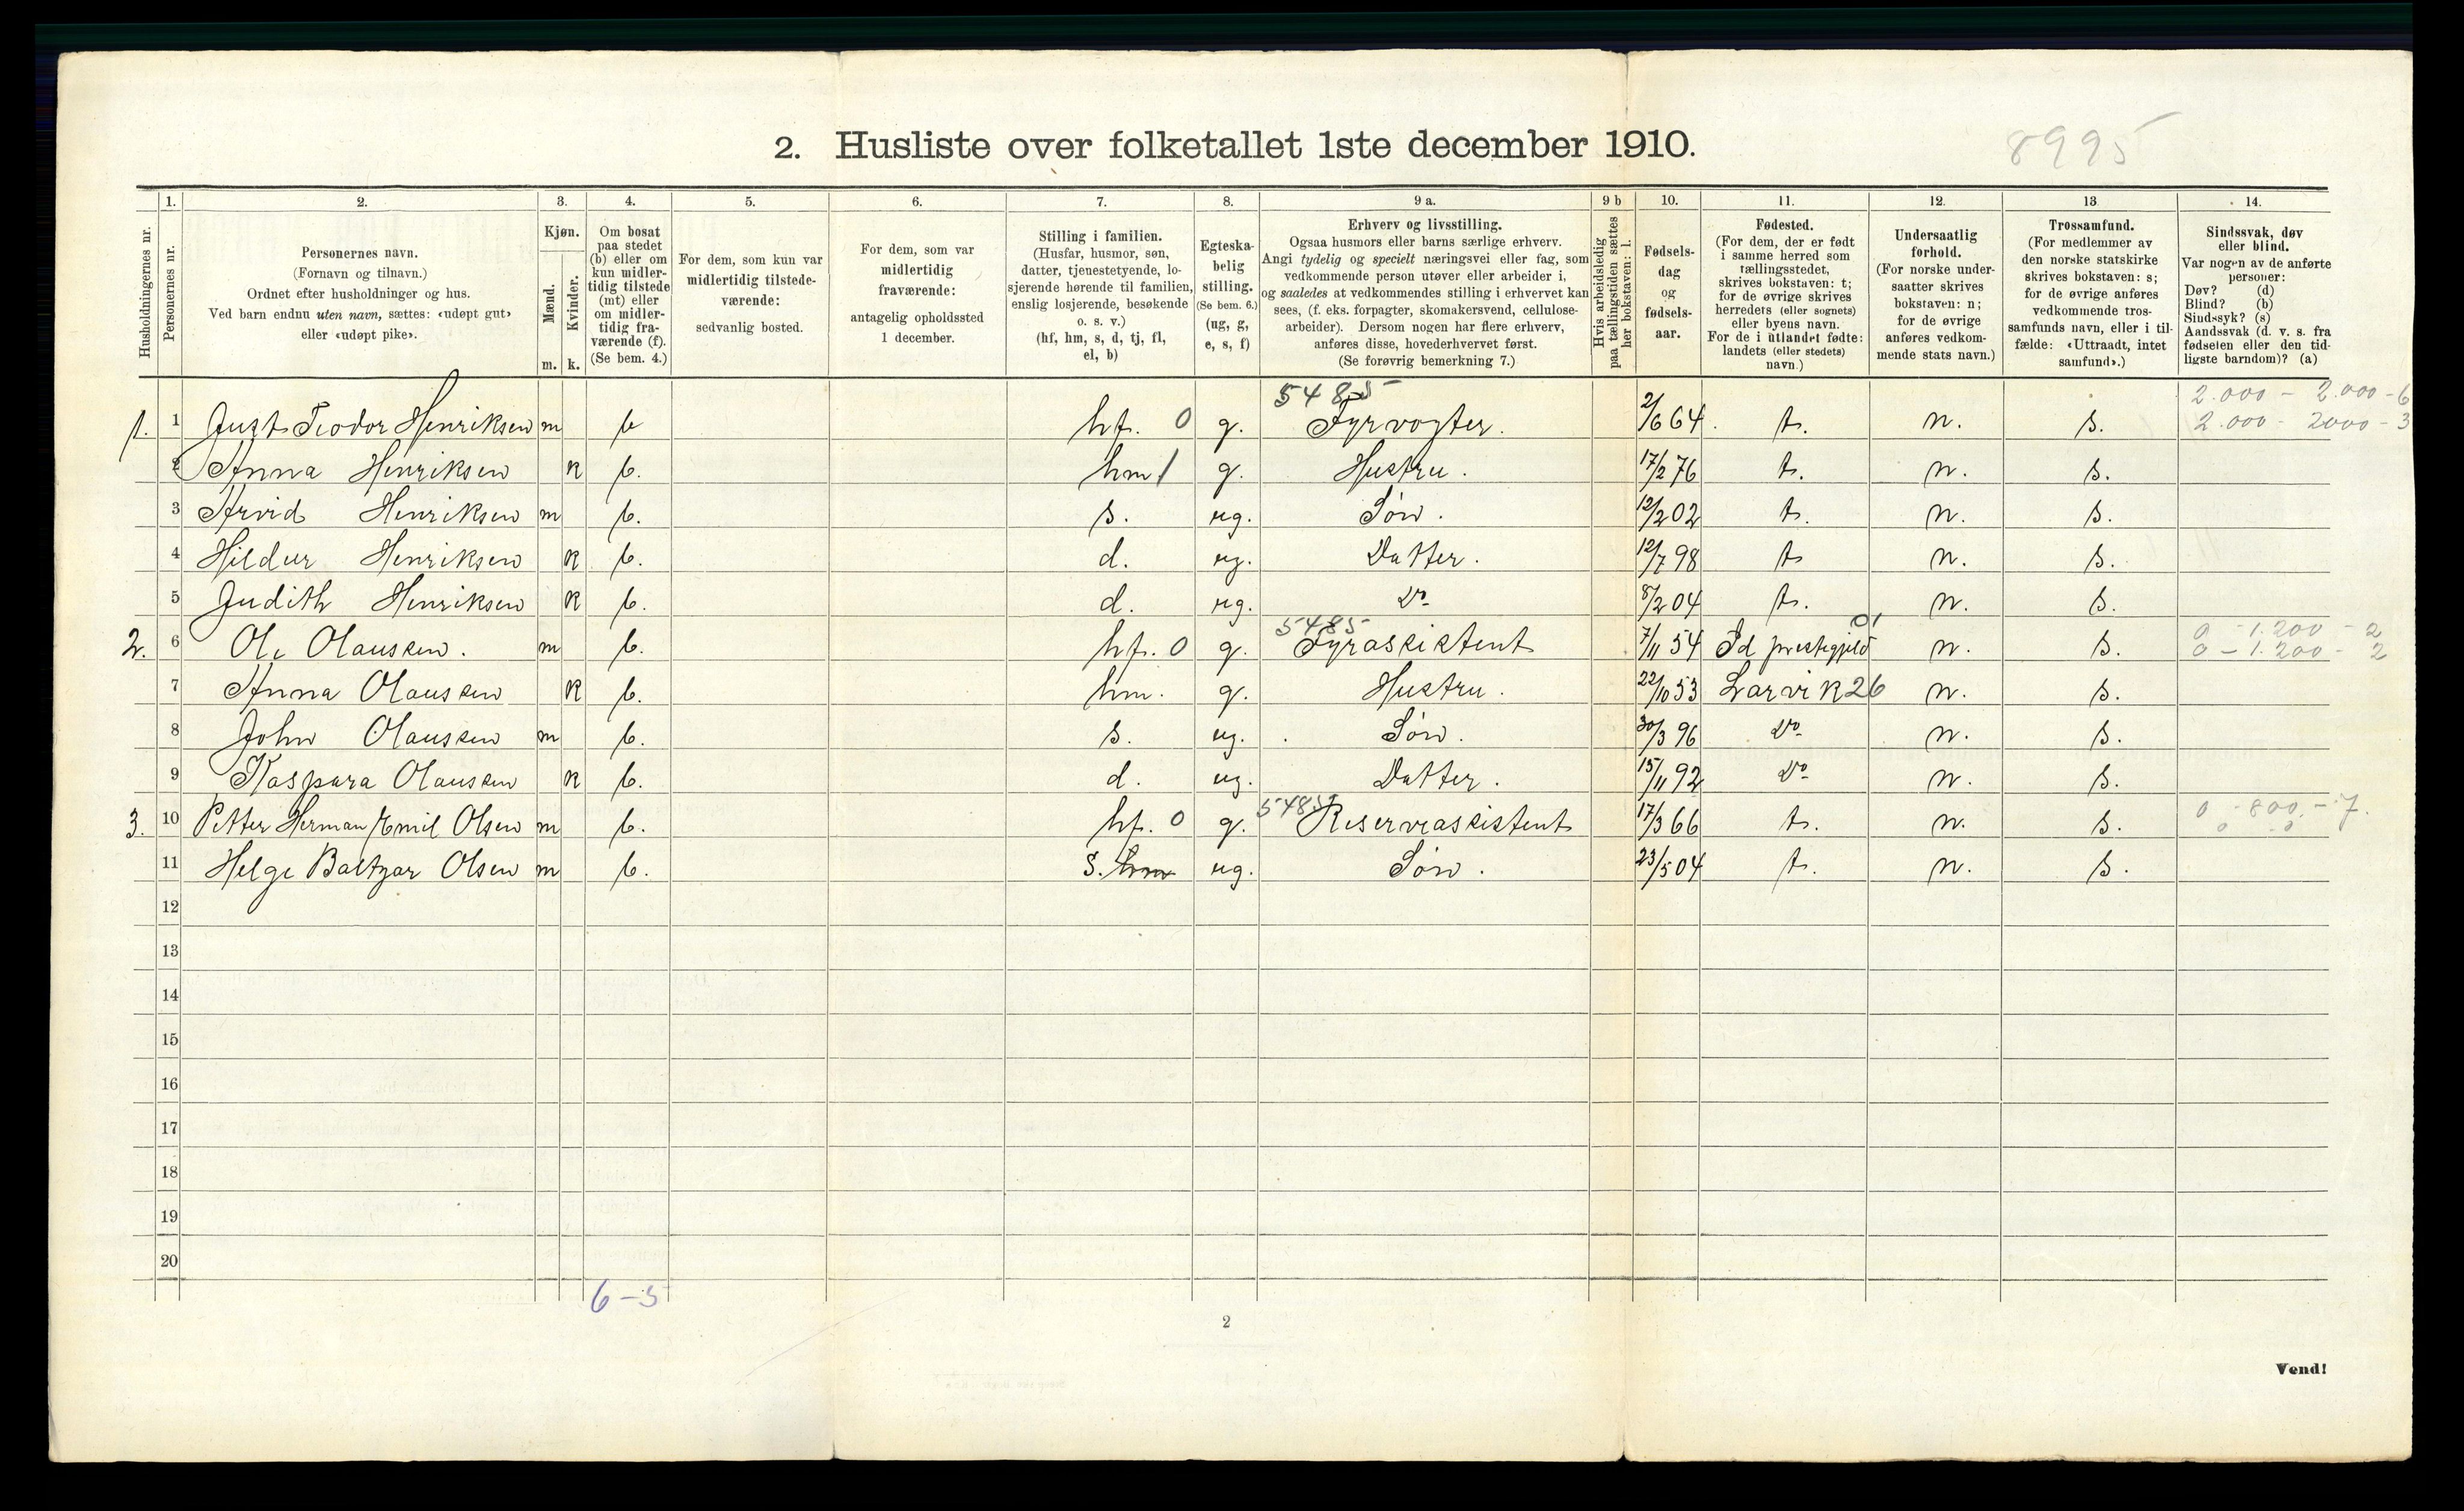 2. Husliste over folketallet 1ste december 1910.
8995
Husholdningernes nr.
1. Personernes nr.
2. Personernes navn.
(Fornavn og tilnavn.)
Ordnet efter husholdninger og hus.
Ved barn endnu uten navn, sættes: «udøpt gut»
eller «udøpt pike».
3. Kjøn.
Mænd. m.
Kvinder. k.
4. Om bosat
paa stedet
(b) eller om
kun midler-
tidig tilstede
(mt) eller
om midler-
tidig fra-
værende (f).
(Se bem. 4.)
5. For dem, som kun var
midlertidig tilstede-
værende:
sedvanlig bosted.
6. For dem, som var
midlertidig
fraværende:
antagelig opholdssted
1 december.
7. Stilling i familien.
(Husfar, husmor, søn,
datter, tjenestetyende, lo-
sjerende hørende til familien,
enslig losjerende, besøkende
o. s. v.)
(hf, hm, s, d, tj, fl,
el, b)
8. Egteska-
belig
stilling.
(Se bem. 6.)
(ug, g,
e, s, f)
9 a. Erhverv og livsstilling.
Ogsaa husmors eller barns særlige erhverv.
Angi tydelig og specielt næringsvei eller fag, som
vedkommende person utøver eller arbeider i,
og saaledes at vedkommendes stilling i erhvervet kan
sees, (f. eks. forpagter, skomakersvend, cellulose-
arbeider). Dersom nogen har flere erhverv,
anføres disse, hovederhvervet først.
(Se forøvrig bemerkning 7.)
9 b Hvis arbeidsledig
paa tællingstiden sættes
her bokstaven: l.
10. Fødsels-
dag
og
fødsels-
aar.
11. Fødested.
(For dem, der er født
i samme herred som
tællingsstedet,
skrives bokstaven: t;
for de øvrige skrives
herredets (eller sognets)
eller byens navn.
For de i utlandet fødte:
landets (eller stedets)
navn.)
12. Undersaatlig
forhold.
(For norske under-
saatter skrives
bokstaven: n;
for de øvrige
anføres vedkom-
mende stats navn.)
13 Trossamfund.
(For medlemmer av
den norske statskirke
skrives bokstaven: s;
for de øvrige anføres
vedkommende tros-
samfunds navn, eller i til-
fælde: «Uttraadt, intet
samfund».)
14. Sindssvak, døv
eller blind.
Var nogen av de anførte
personer:
Døv? (d)
Blind? (b)
Sindssyk? (s)
Aandssvak (d. v. s. fra
fødselen eller den tid-
ligste barndom)? (a)
5485 2.000 - 2.000 - 6
1. 1 Just Teodor Henriksen m b hf. 0 g. Fyrvogter. 2/6 64. t. n. s. 2.000 - 2000 - 3
2 Anna Henriksen k b. hm 1 g. Hustru. 17/2 76 t. n. s.
3 Arvid Henriksen m b. s. ug. Søn. 12/2 02 t. n. s.
4 Hildur Henriksen k b. d. ug. Datter. 12/7 98 t n. s.
5 Judith Henriksen k b. d. ug. Do 8/2 04 t. n. s.
5485 01 0 - 1.200 - 2
2. 6 Ole Olaussen. m b. hf. 0 g. Fyrassistent 7/11 54 Id prestegjeld n. s. 0 - 1.200 - 2
7 Anna Olaussen k b. hm. g. Hustru. 22/10 53 Larvik 26 n. s.
8 John Olaussen m b. s. ug. Søn. 30/3 96 Do n. s.
9 Kaspara Olaussen k b. d. ug. Datter. 15/11 92 Do n. s.
5485 0 - 800 - 7.
3. 10 Petter Herman Emil Olsen m b. hf. 0 g. Reserveassistent 17/3 66 t. n. s. 0 - 0
11 Helge Baltzar Olsen m b. s. hm ug. Søn. 23/5 04 t. n. s.
12
13
14
15
16
17
18
19
20
6 - 5
2
Vend!